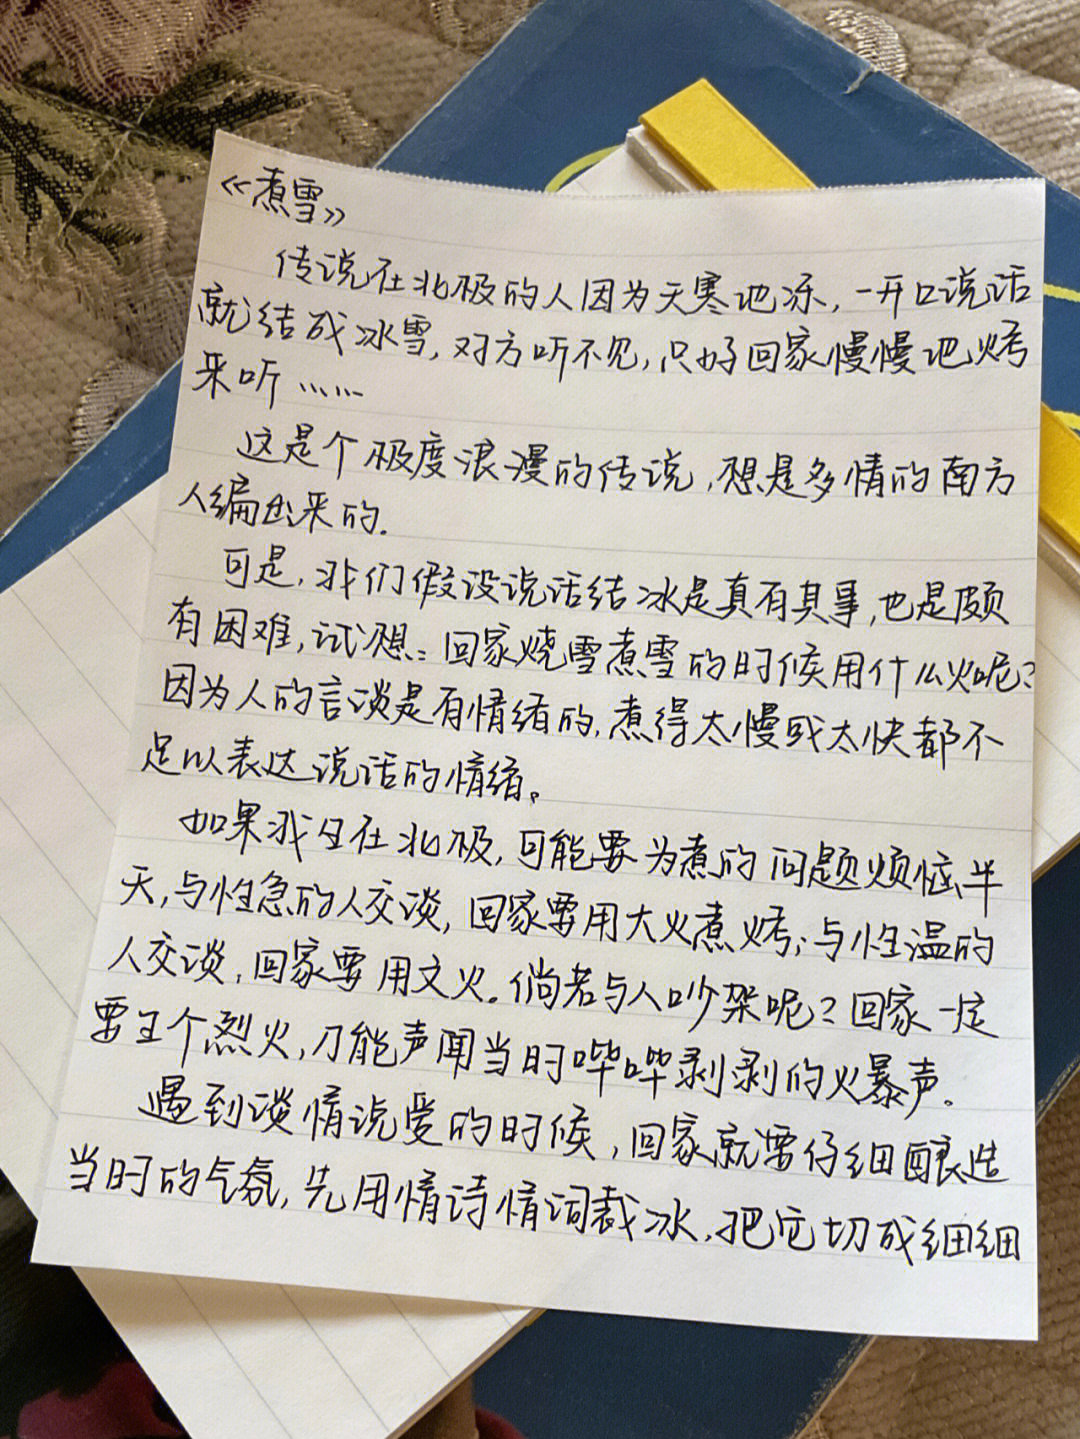 《煮雪》
传说在北极的人因为天寒地冻,一开口说话
就结成冰雪,对方听不见,只好回家慢慢地烤
来听……
这是个极度浪漫的传说,想是多情的南方
人编出来的.
可是,我们假设说话结冰是真有其事,也是颇
有困难,试想:回家烧雪煮雪的时候用什么火呢?
因为人的言谈是有情绪的,煮得太慢或太快都不
足以表达说话的情绪。
如果我生在北极,可能要为煮的问题烦恼半
天,与性急的人交谈,回家要用大火煮烤;与性温的
人交谈,回家要用文火。倘若与人吵架呢?回家一定
要生个烈火,才能声闻当时哔哔剥剥的火暴声。
遇到谈情说爱的时候,回家就要仔细酿造
当时的气氛,先用情诗情词裁冰,把它切成细细